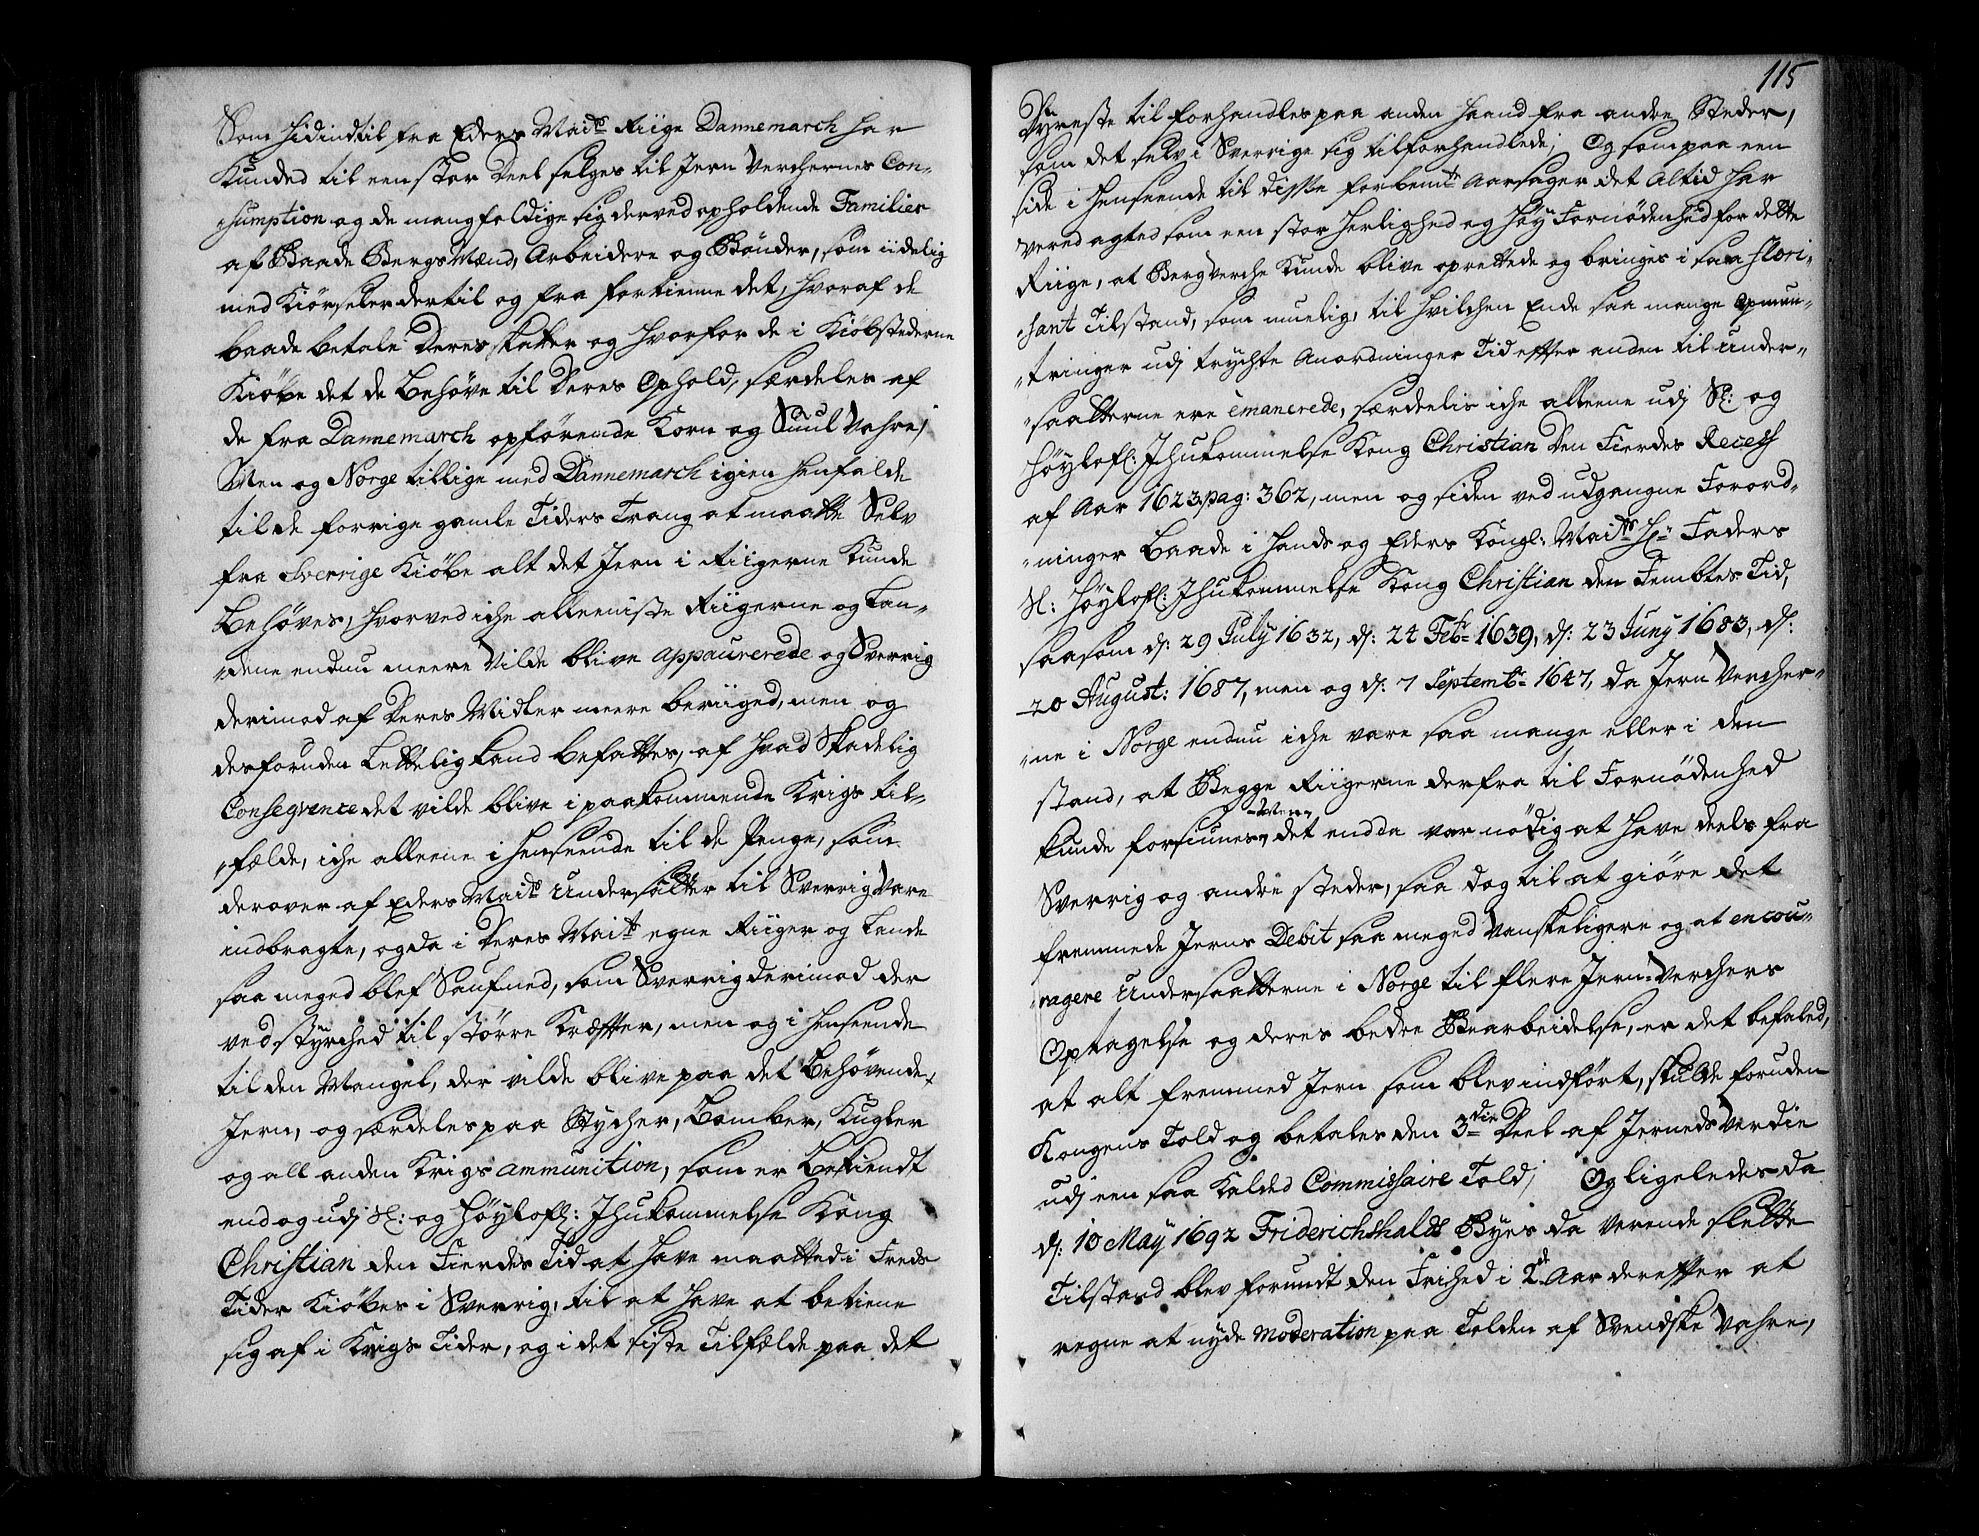 Som hidindtil fra Eders Maits Riige Dannemarch har
Kunded til een stor Deel selges til Jern Verchernes Con-
sumption og de mangfoldige sig derved opholdende Familier
af Baade BergsMænd, Arbeidere og Bönder, som iidelig
med Kiörseler dertil og fra fortienne det, hvoraf de
baade betale Deres skatter og hvorfor de i Kiöbstederne
Kiöbe det de Behöve til Deres Ophold, særdeles af
de fra Dannemarch opförende Korn og Suul Vahre,
Men og Norge tillige med Dannemarch igien henfalde
til de forrige gamle Tiders Trang at maatte Selv
fra Sverrige Kiöbe alt det Jern i Riigerne Kunde
Behöves, hvorved iche alleeniste Riigerne og Lan-
dene endnu meere Vilde blive appaurerede og Sverrig
derimod af Deres Midler meere beriiged, men og
desforuden Letteligkand befattes, af hvad Skadelig
Conseqvence det vilde blive i paakommende Krigs til-
fælde, iche alleene i henseende til de Penge, som
derover af Eders Maits Undersåtter til Sverrig Vare
indbragte, og da i Deres Maits egne Riiger og Lande
saa meged blef Saufned, som Sverrig derimod der
ved styrched til större Kræffter, men og i henseende
til den Mangel, der vilde blive paa det Behövende
Jern, og særdeles paa Stycher, Bomber, Kugler
og all anden Krigs ammunition, som er bekiendt
end og udj Sl: og Höylofl: Ihukommelse Kong
Christian den Fierdes Tid at have maatted i Freds
Tider Kiöbes i Sverrig, til at have at betiene
sig af i Krigs Tider, og i det sidste Tilfælde paa det
115
Dyreste til forhandles paa anden haand fra andre Steder,
som det selv i Sverrige sig tilforhandlede; Og som paa een
side i henseende til disse forbemte Aarsager det Altid har
vered agted som een stor herlighed og höy Fornödenhed for dette
Riige, at Bergverche Kunde blive oprettede og bringes i saa flori-
sant Tilstand, som muelig, til hvilchen Ende saa mange Opmun-
tringer udj trychte Anordninger Tid effter anden til Under-
saatterne ere emanerede, særdeelis iche alleene udj Sl: og
Höylofl: Ihukommelse Kong Christian den Fierdes Recess
af Aar 1623 pag: 362, men og siden ved udgangne Forord-
ninger Baade i hands og Eders Kongl: Maits Hr Faders
Sl: Höylofl: Ihukommelse Kong Christian den Fembtes Tid,
saasom d: 29 July 1632, d: 24 Febr 1639, d: 23 Juny 1683, d:
20 August: 1687, men og d: 7 Septembr 1647, da Jern Vercher-
ne i Norge endnu iche vare saa mange eller i den
stand, at Begge Riigerne derfra til Fornödenhed
Kunde forsiunes, det endda var nödig at have deels fra
Sverrig og andre steder, saa dog til at giöre det
fremmede Jerns Debit saa meged Vanskeligere og at encou-
ragere Undersaatterne i Norge til flere Jern-Verchers
Optagelse og deres bedre Bearbeidelse, er det befaled,
at alt fremmed Jern som blev indfört, skulde foruden
Kongens Told og betales den 3die Deel af Jerneds Verdie
udj een saa kalded Commissaire Told; Og ligeledes da
d: 10 May 1692 Friderichshalds Byes da Verende slette
Tilstand blev forundt den Frihed i 2de Aar dereffter at
regne at nyde moderation paa Tolden af Svendske Vahre,